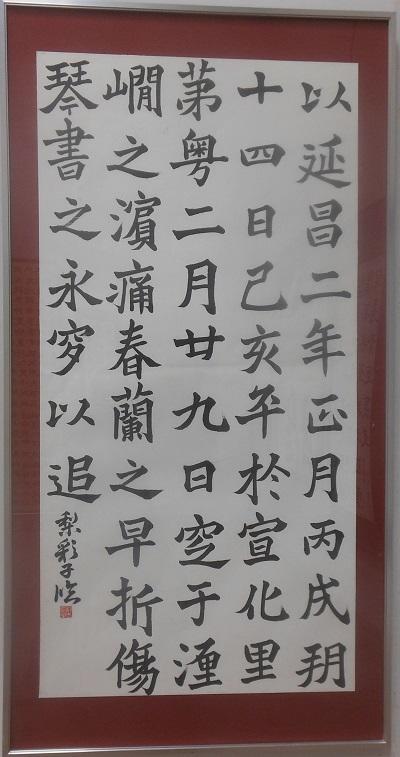 以延昌二年正月丙戌朔
十四日己亥卒於宣化里
第粤二月廿九日窆于瀍
澗之濵痛春蘭之早折傷
琴書之永穸以追
梨彩子臨